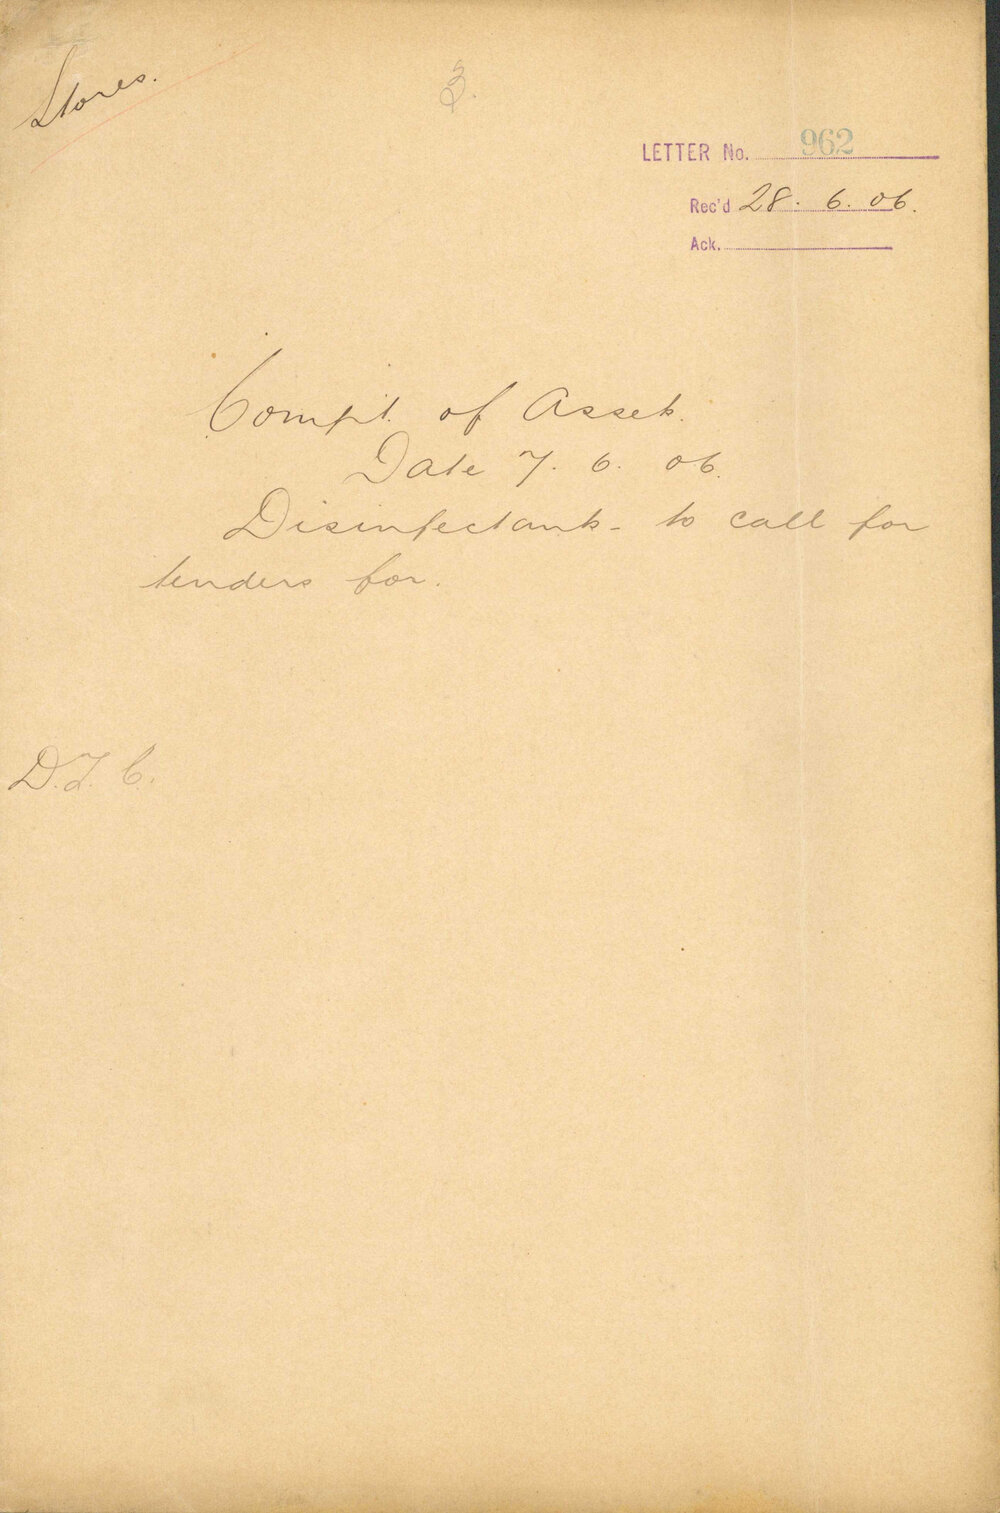 Stores.
3.
LETTER No. 962
Rec'd 28. 6. 06.
Ack.
Compt. of Assets.
Date 7. 6. 06.
Disinfectants - to call for
tenders for.
D.T.C.